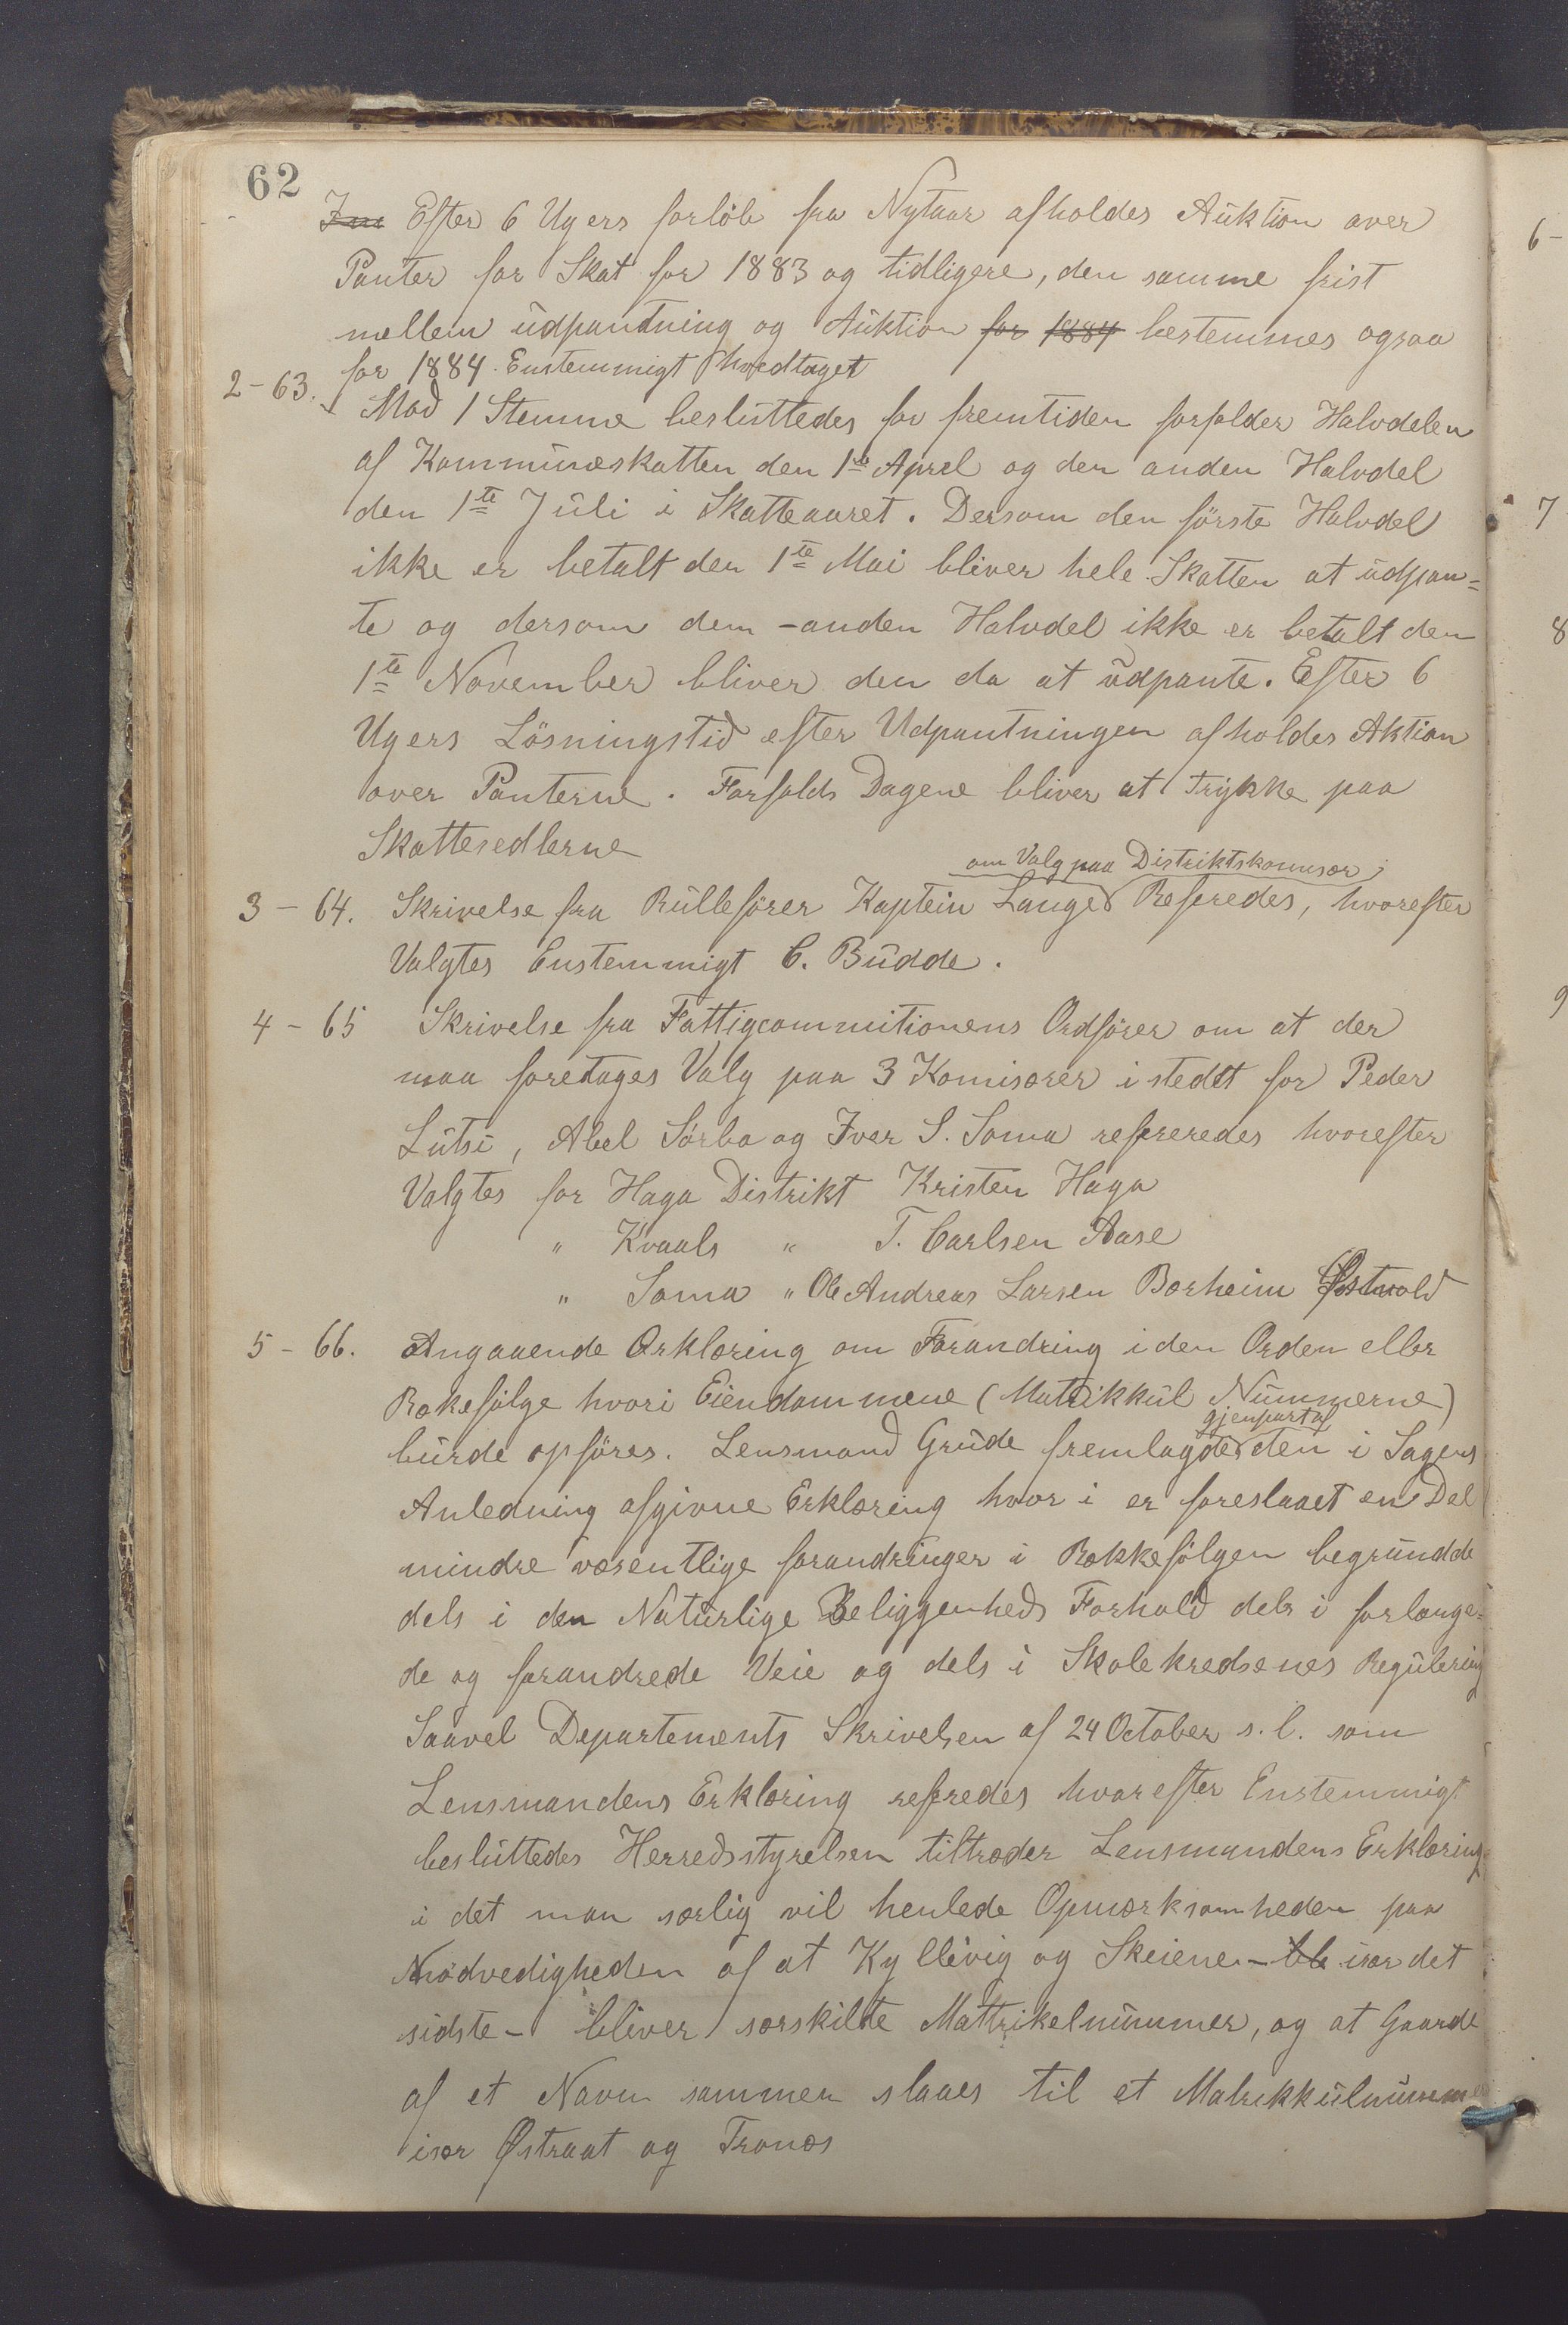 62
Im Efter 6 Ugers forløb fra Nytaar afholdes Auktion over
Panter for Skat for 1883 og tidligere, den samme frist
mellem udpantning og Auktion for 1884 bestemmes ogsaa
for 1884. Enstemmigt
2-63. Mod 1 Stemme besluttedes for fremtiden forfalder Halvdelen
af Kommuneskatten den 1te Aprel og den anden Halvdel
den 1te Juli i Skatteaaret. Dersom den første Halvdel
ikke er betalt den 1te Mai bliver hele Skatten at udpan=
te og dersom dem -anden Halvdel ikke er betalt den
1te November bliver den da at udpante. Efter 6
Ugers Løsningstid efter Udpantningen afholdes Aktion
over Panterne. Forfalds Dagene bliver at trykke paa
Skattesedlerne
om Valg paa Distriktskommsær
3-64. Skrivelse fra Rullefører Kaptein Lange Refredes, hvorefter
Valgtes Enstemmigt C. Budde.
4-65 Skrivelse fra Fattigcommitionens Ordfører om at der
maa foretages Valg paa 3 Komisærer i stedet for Peder
Lutsi, Abel Sørbø og Iver S. Soma refereredes hvorefter
Valgtes for Haga Distrikt Kristen Haga
" Kvaals " T. Carlsen Aase
" Soma " Ole Andreas Larsen Borheim Østvold
5-66. Angaaende Erklæring om Forandring i den Orden eller
Rækefølge hvori Eiendommene (Matrikkul Nummerne)
gjenpart af
burde opføres. Lensmand Grude fremlagde den i Sagens
Anledning afgivne Erklæring hvor i er foreslaaet en Del
mindre væsentlige forandringer i Rækkefølgen begrundde
dels i den Naturlige Beliggenheds Forhold dels i forlænge=
de og forandrede Veie og dels i Skolekredsenes Regulering
Saavel Departements Skrivelsen af 24 October s.l. som
Lensmandens Erklæring refredes hvorefter Enstemmigt
besluttedes Herredsstyrelsen tiltræder Lensmandens Erklæring
i det man særlig vil henlede Opmærksomheden paa
Nødvedigheden af at Kyllevig og Skeiene - ble især det
sidste - bliver særskilte Mattrikelnummer, og at Gaarde
af et Navn sammen slaaes til et Matrikkulnummer
især Østraat og Tronæs
6-
7
8
9